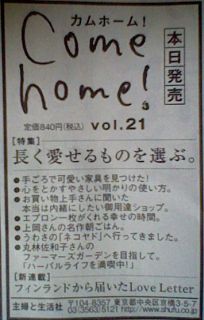 カムホーム!
Come home!
本日発売
定価840円(税込) vol.21
[特集]
長く愛せるものを選ぶ。
●手ごろで可愛い家具を見つけた!
●心をとかすやさしい明かりの使い方。
●お買い物上手さんに聞いた
本当は内緒にしたい御用達ショップ。
●エプロン一枚がくれる幸せの時間。
●上岡さんの名作朝ごはん。
●うわさの「ネコヤド」へ行ってきました。
●丸林佐和子さんの
ファーマーズガーデンを目指して。
「ハーバルライフを満喫中!」
[新連載]
フィンランドから届いたLove Letter
主婦と生活社
〒104-8357 東京都中央区京橋3-5-7
03(3563)5121 http://www.shufu.co.jp